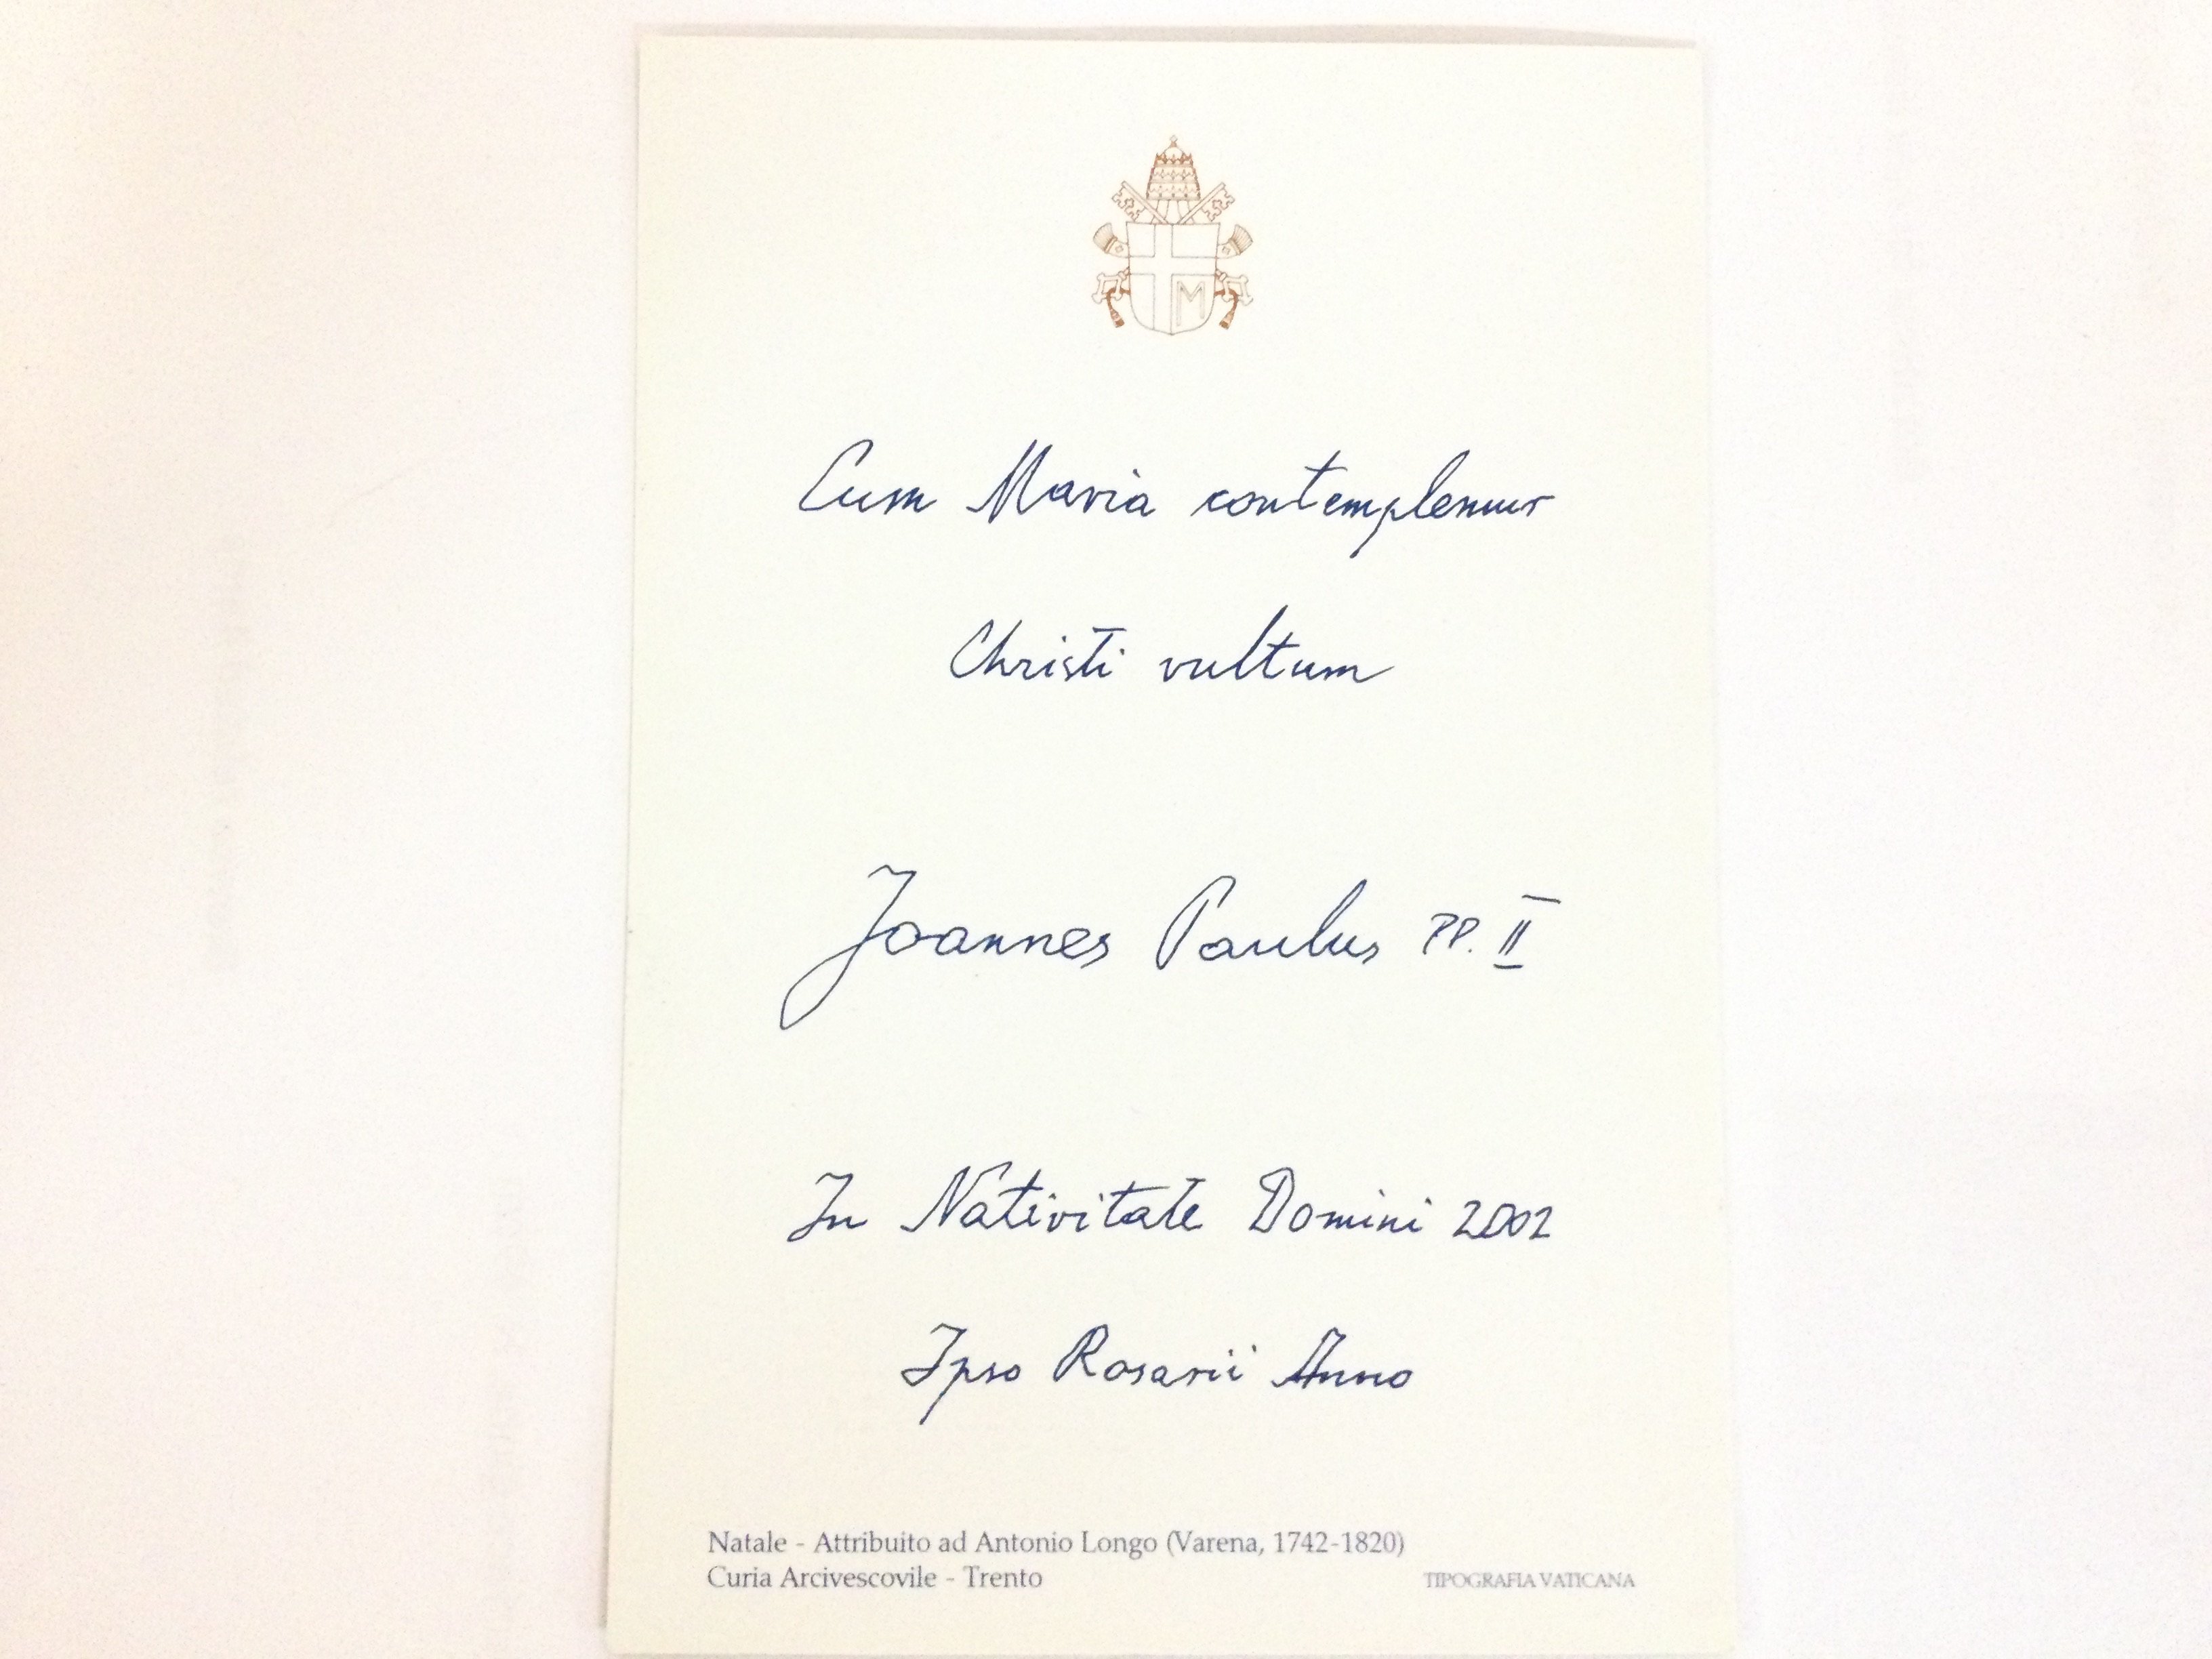 M
Cum Maria contemplemur
Christi vultum
Joannes Paulus PP. II
In Nativitate Domini 2002
Ipso Rosarii Anno
Natale - Attribuito ad Antonio Longo (Varena, 1742-1820)
Curia Arcivescovile - Trento
TIPOGRAFIA VATICANA